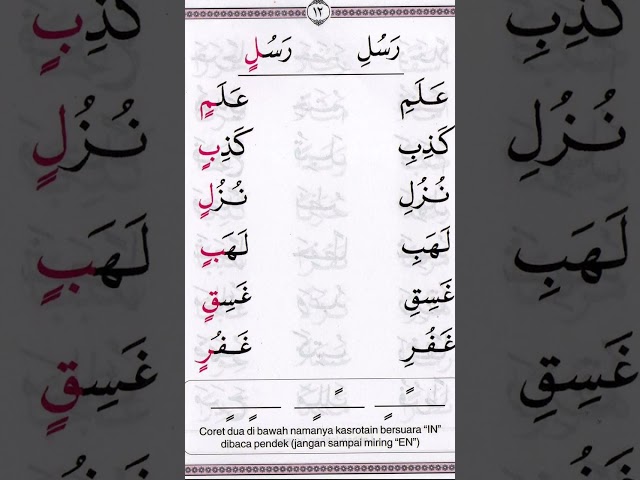 ١٢
رَسُلِ رَسُلٍ
عَلَمِ عَلَمٍ
كَذِبِ كَذِبٍ
نُزُلِ نُزُلٍ
لَهَبِ لَهَبٍ
غَسِقِ غَسِقٍ
غَفُرِ غَفُرٍ
Coret dua di bawah namanya kasrotain bersuara “IN”
dibaca pendek (jangan sampai miring “EN”)